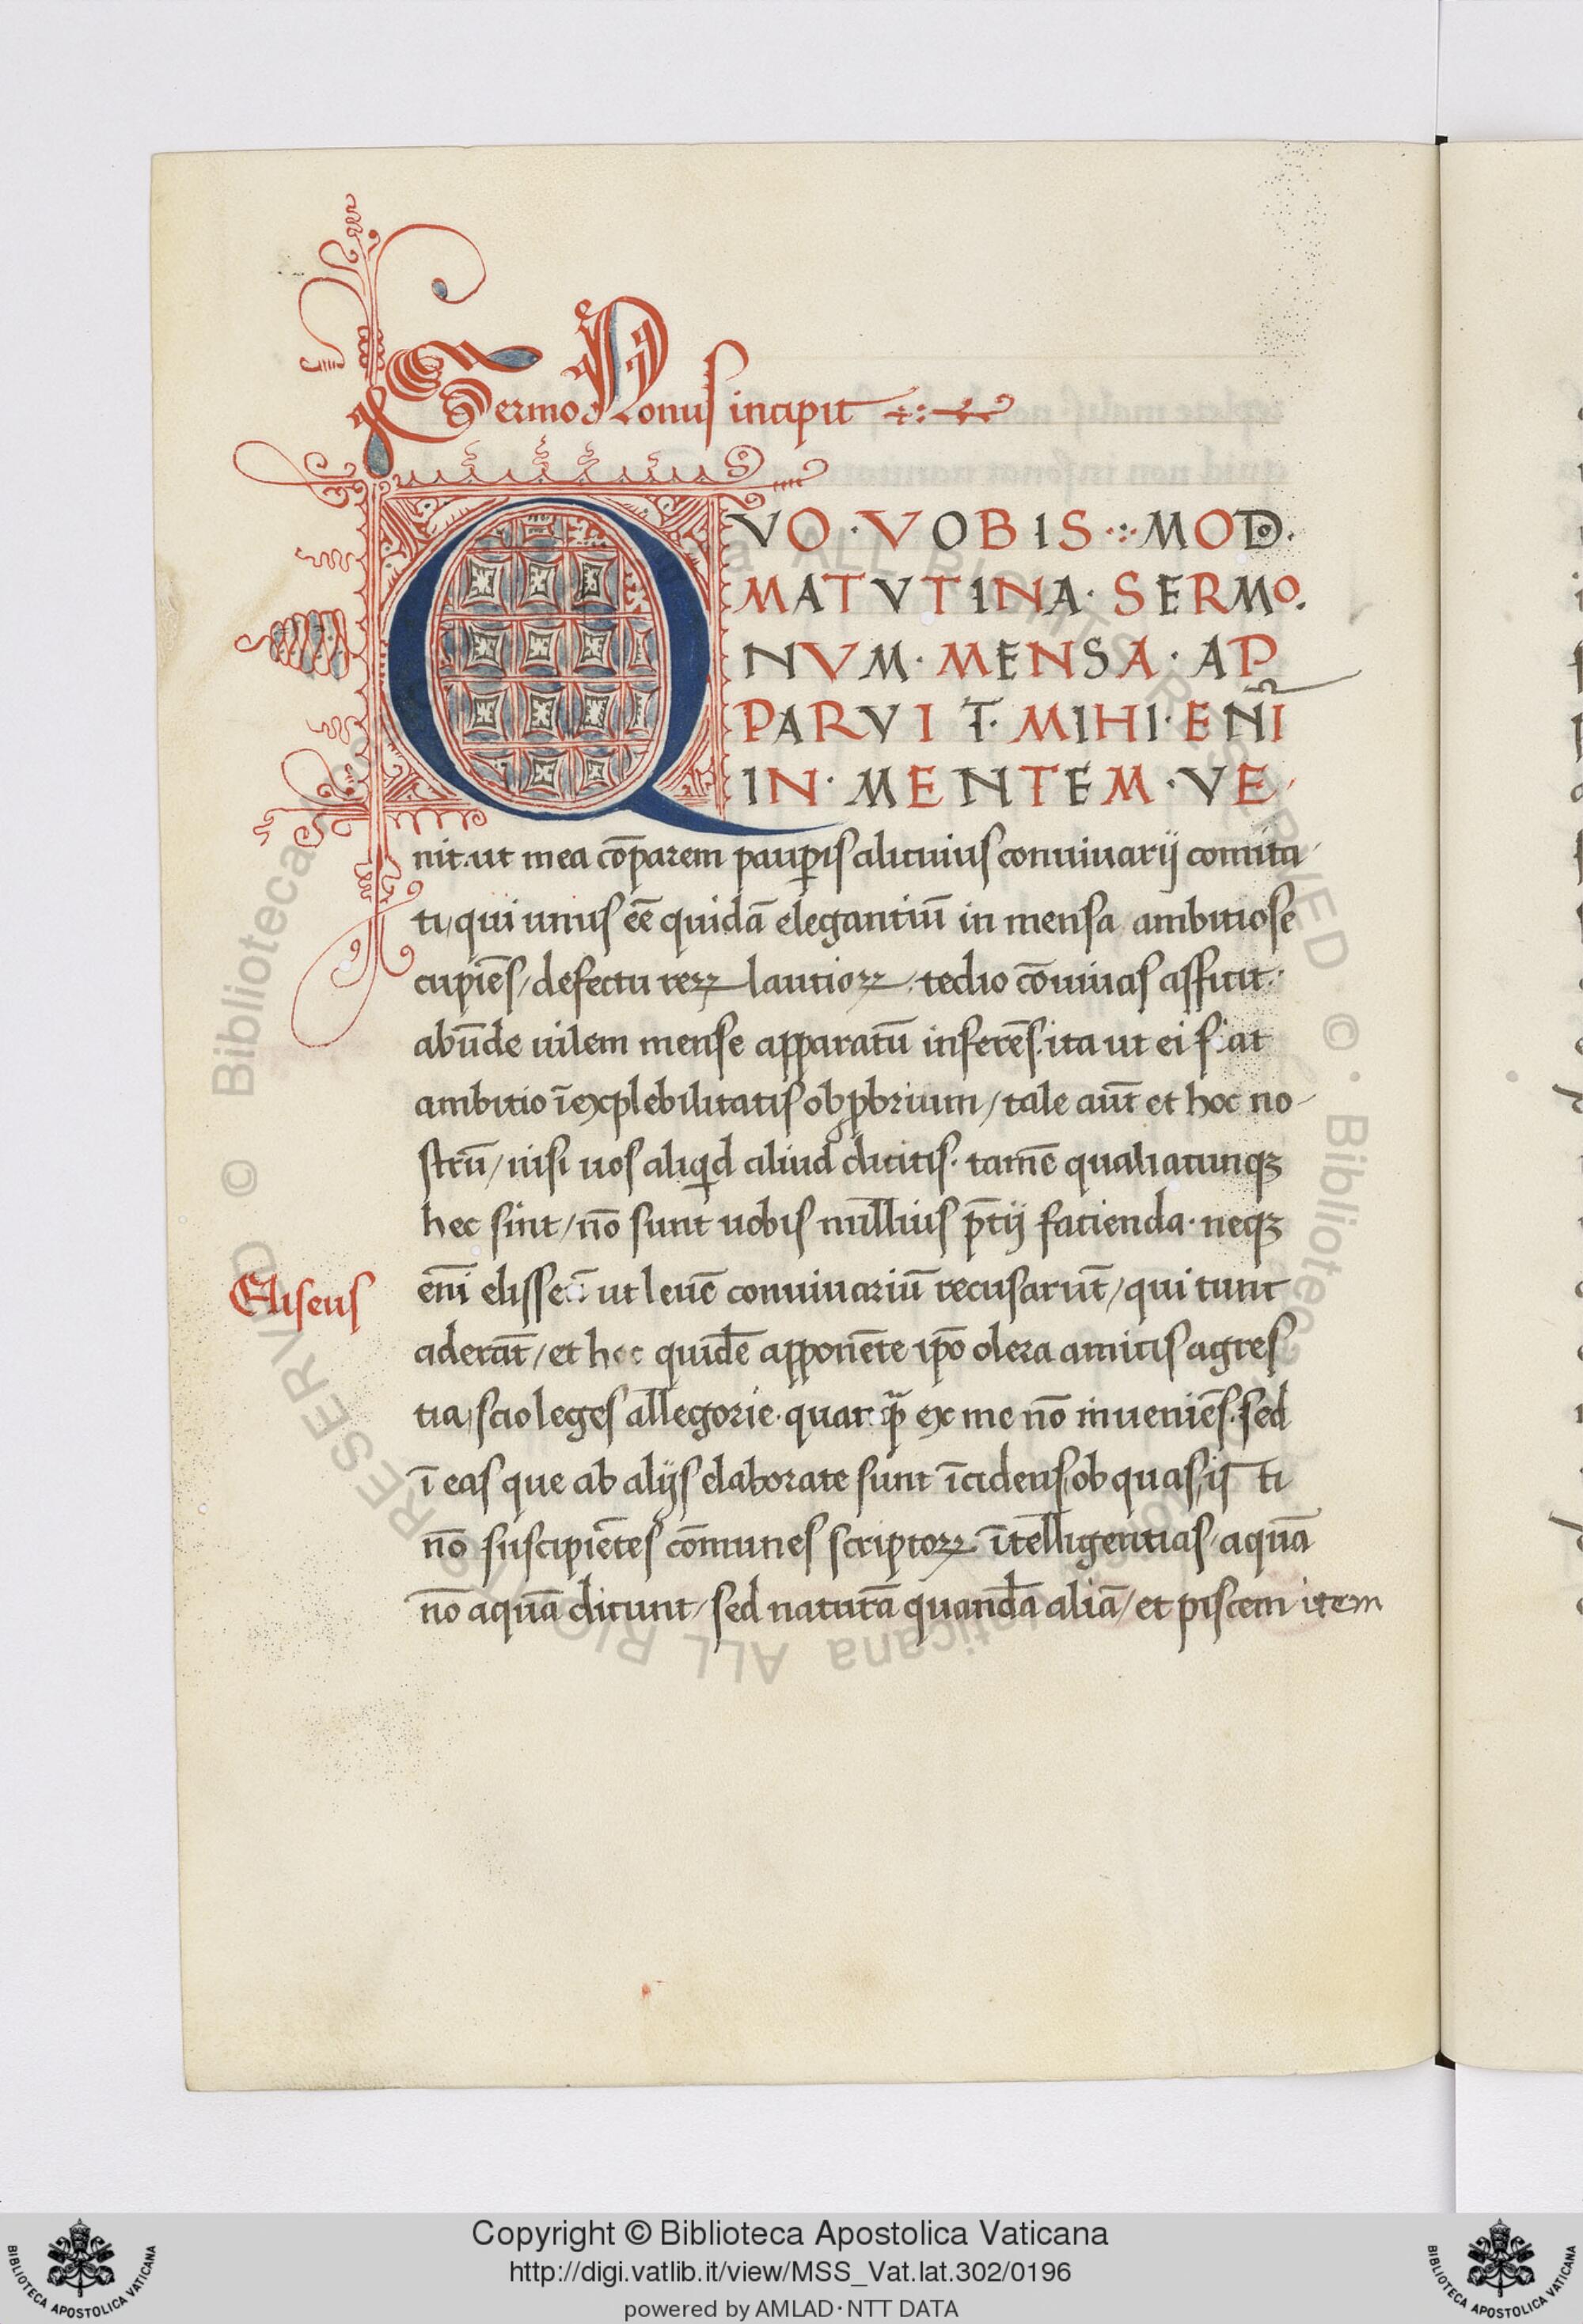 Sermo Nonus incipit
QVO · VOBIS ·:· MOD·
MATVTINA · SERMO·
NVM · MENSA · AP
PARVIT · MIHI · ENĪ
IN · MENTEM · VE
nit.ut mea cōparem paup̱is alicuius conuiuarij comita
ti/qui unus eē quidā elegantiū in mensa ambitiose
cupiēs/defectu reꝝ lautioꝝ/tedio cōuiuas afficit·
abūde uilem mense apparatū inferēs.ita ut ei fiat
ambitio īexplebilitatis obꝓbrium/tale aūt et hoc no
strū/nisi uos aliqd aliud dicitis· tamē qualiacunqꝫ
hec sint/nō sunt uobis nullius p̄tij facienda· neqꝫ
enī elisseū ut leuē conuiuariū recusarūt/qui tunc
Eliseus
aderāt/et hoc quidē apponēte ip̄o olera amicis agres
tia/scio leges allegorie· ex me nō inueniēs.sed
ī eas que ab alijs elaborate sunt īcidens/ob quas/ij ti
nō suscipiētes cōmunes scriptoꝝ ītelligentias/aquā
nō aquā dicunt/sed naturā quandā aliā/et piscem item
© Biblioteca Apostolica Vaticana ALL RIGHTS RESERVED
Copyright © Biblioteca Apostolica Vaticana
http://digi.vatlib.it/view/MSS_Vat.lat.302/0196
powered by AMLAD·NTT DATA
BIBLIOTECA APOSTOLICA VATICANA
BIBLIOTECA APOSTOLICA VATICANA